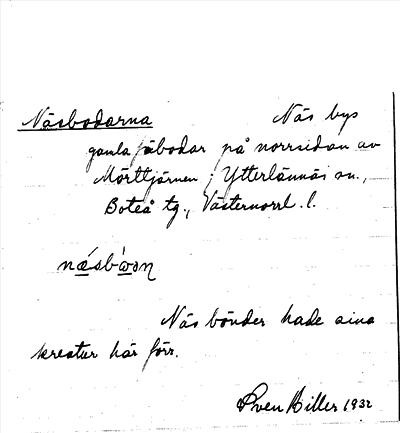 Näsbodarna Näs bys
gamla fäbodar på norrsidan av
Mörttjärnen i Ytterlännäs sn.,
Boteå tg., Västernorrl. l.
nǽsbòɷn
Näs bönder hade sina
kreatur här förr.
Sven Hiller 1932